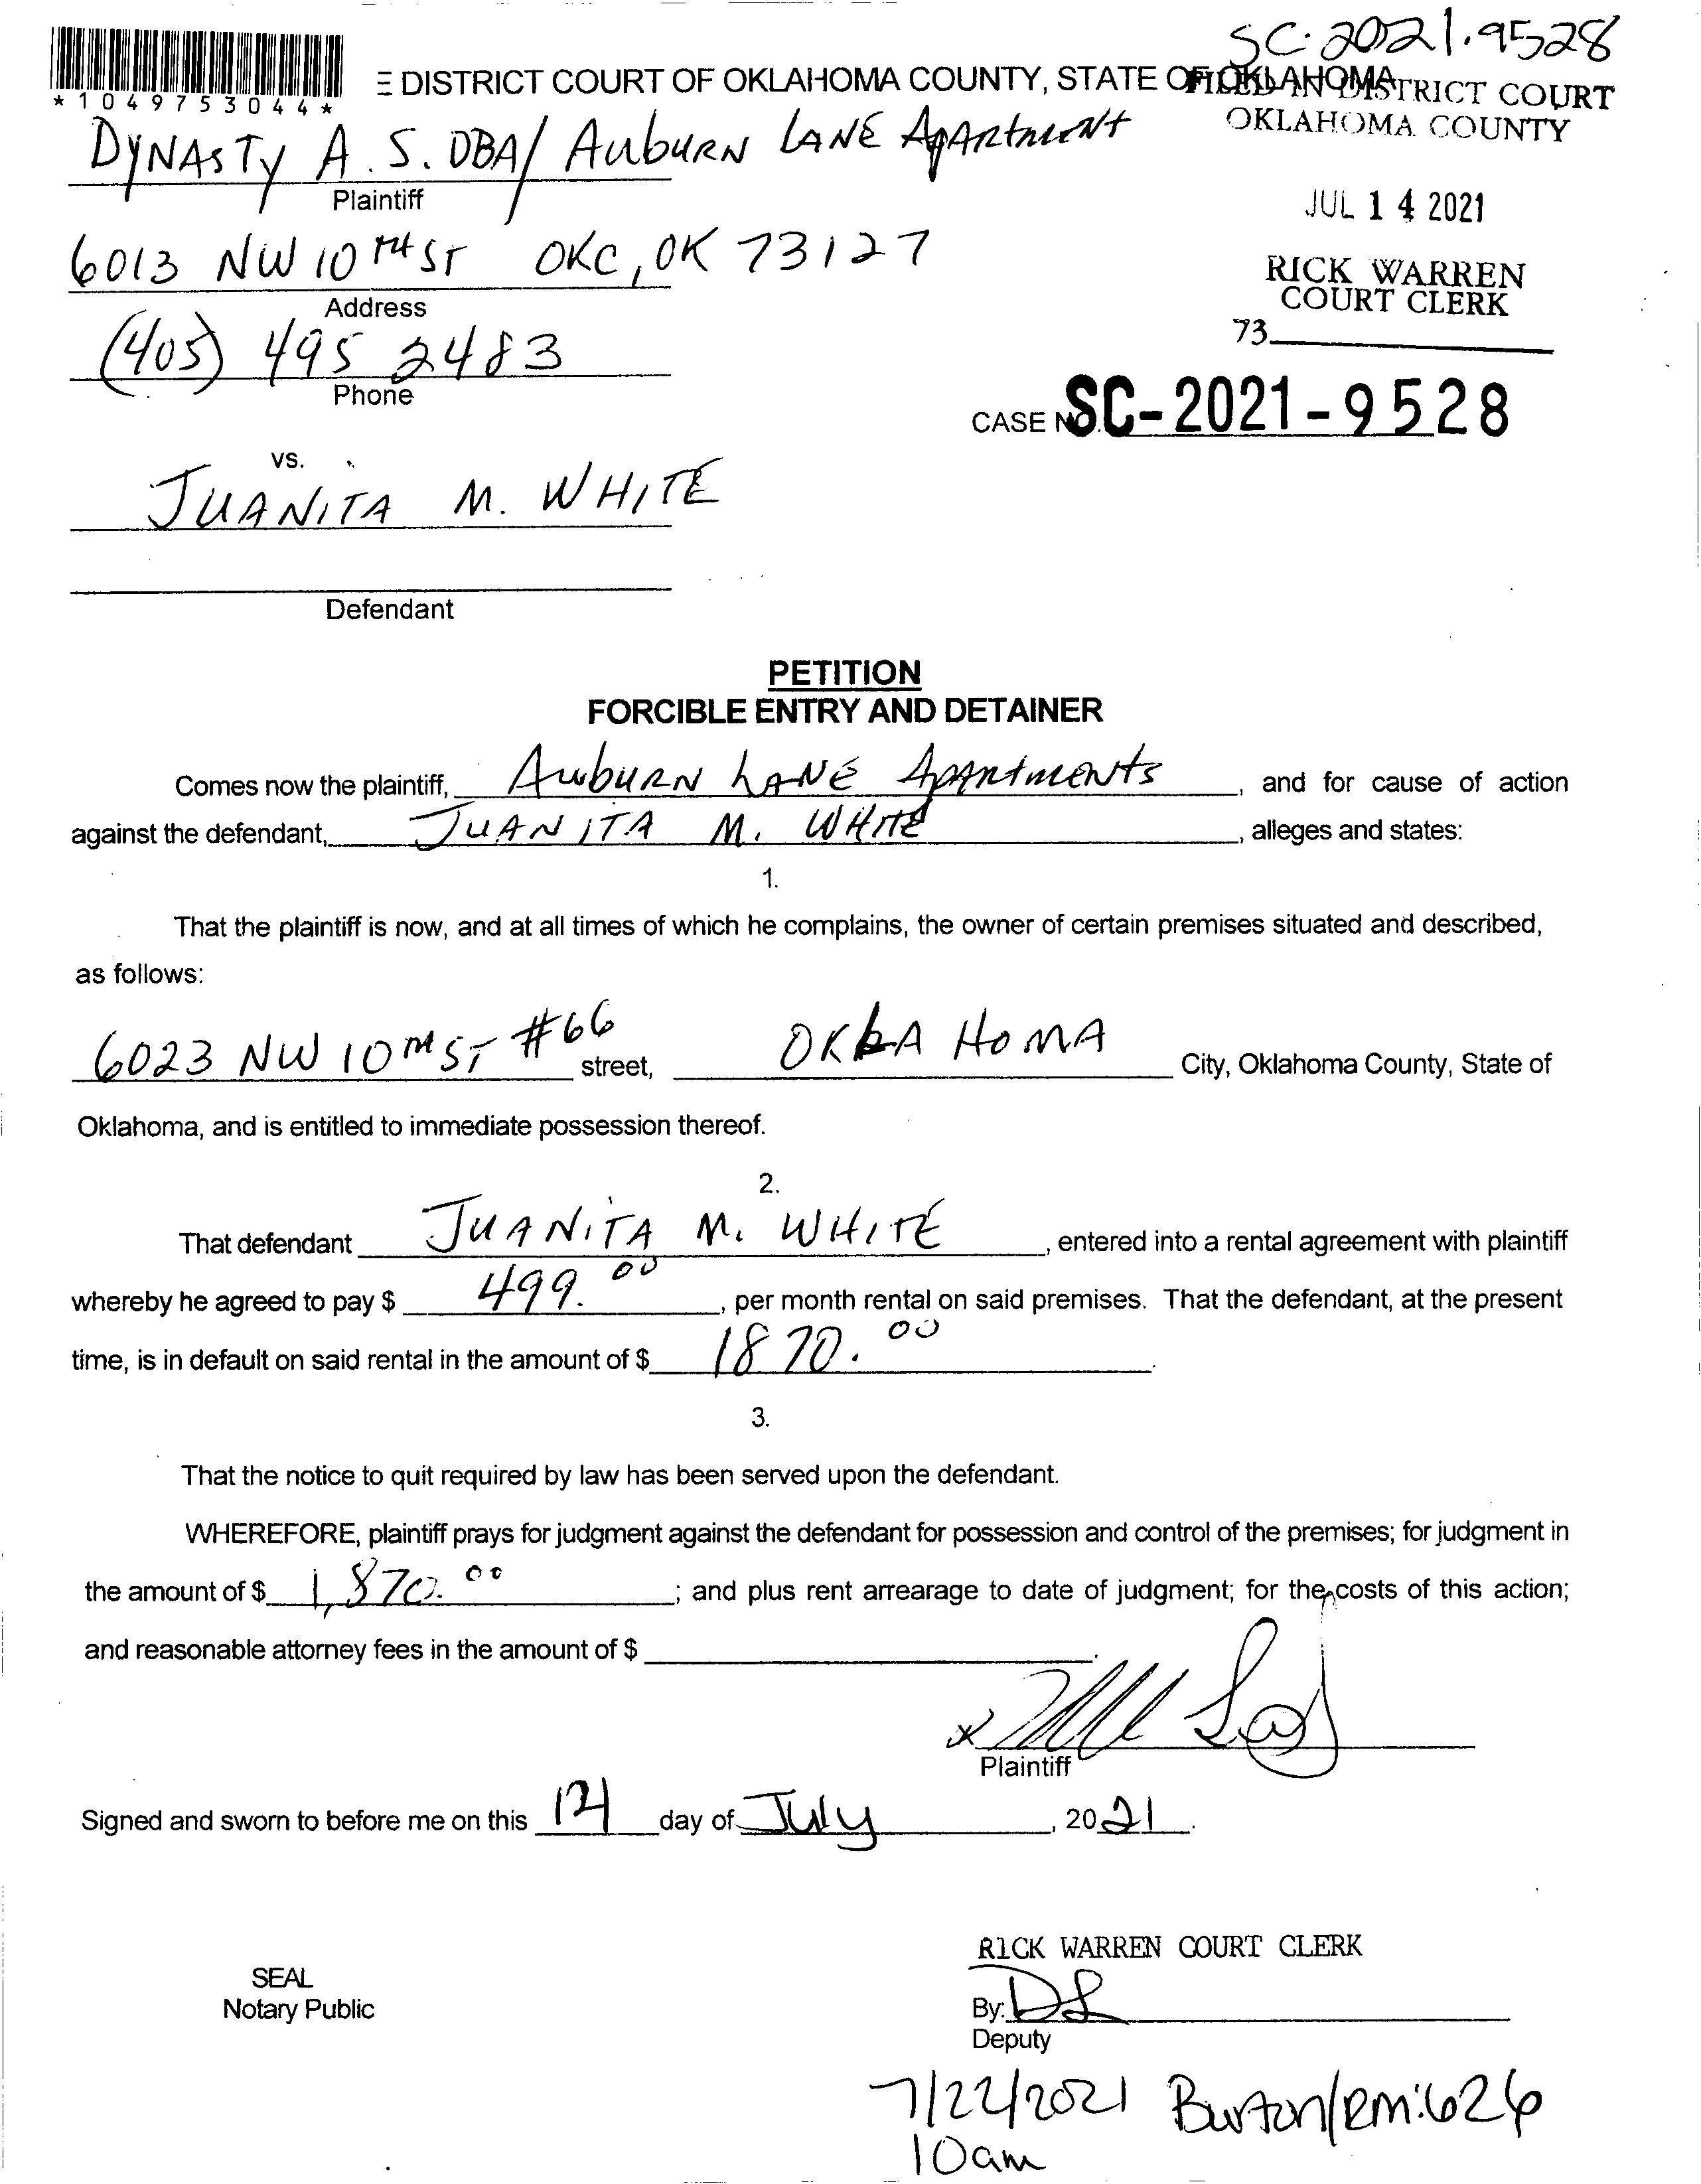 SC-2021-9528
E DISTRICT COURT OF OKLAHOMA COUNTY, STATE OF OKLAHOMA
*1049753044*
FILED IN DISTRICT COURT
OKLAHOMA COUNTY
DYNASTY A. S. DBA/ AUBURN LANE APARTMENT
Plaintiff
JUL 14 2021
6013 NW 10TH ST OKC, OK 73127
Address
RICK WARREN
COURT CLERK
73
(405) 495 2483
Phone
CASE NO. SC-2021-9528
vs.
JUANITA M. WHITE
Defendant
PETITION
FORCIBLE ENTRY AND DETAINER
Comes now the plaintiff, AUBURN LANE APARTMENTS, and for cause of action
against the defendant, JUANITA M. WHITE, alleges and states:
1.
That the plaintiff is now, and at all times of which he complains, the owner of certain premises situated and described,
as follows:
6023 NW 10TH ST #66 street, OKLAHOMA City, Oklahoma County, State of
Oklahoma, and is entitled to immediate possession thereof.
2.
That defendant JUANITA M. WHITE, entered into a rental agreement with plaintiff
whereby he agreed to pay $ 499.00, per month rental on said premises. That the defendant, at the present
time, is in default on said rental in the amount of $ 1870.00.
3.
That the notice to quit required by law has been served upon the defendant.
WHEREFORE, plaintiff prays for judgment against the defendant for possession and control of the premises; for judgment in
the amount of $ 1,870.00; and plus rent arrearage to date of judgment; for the costs of this action;
and reasonable attorney fees in the amount of $
x
Plaintiff
Signed and sworn to before me on this 14 day of July, 2021.
RICK WARREN COURT CLERK
SEAL
Notary Public
By: DL
Deputy
7/22/2021 Burton/RM:626
10am